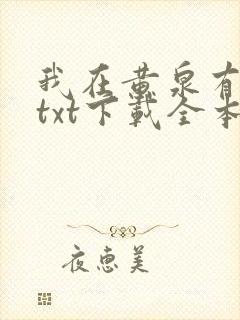 我在黄泉有
txt下载全本
夜惠美